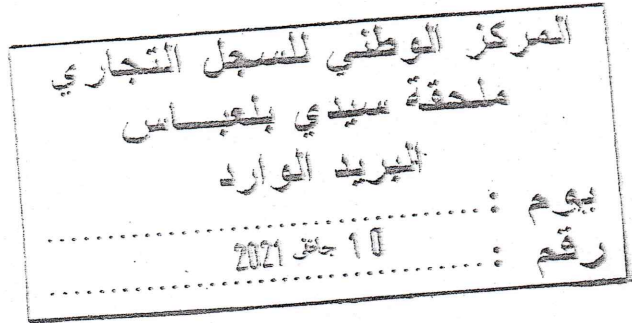 المركز الوطني للسجل التجاري
ملحقة سيدي بلعباس
البريد الوارد
يوم :
10 جانفي 2021
رقم :